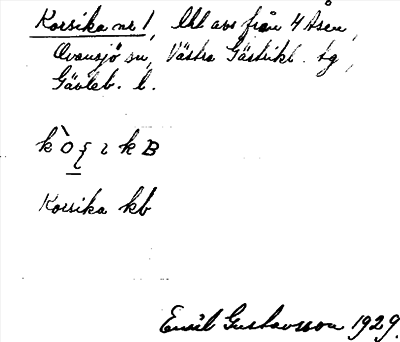 Korsika nr 1, Lht avs från 4 Åsen,
Ovansjö sn, Västra Gästrikl. tg,
Gävleb. l.
Korsika kb
Emil Gustavsson 1929.